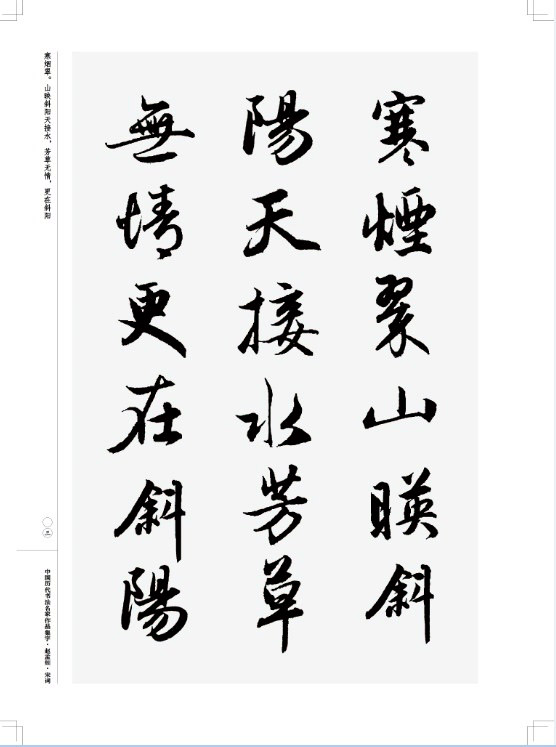 寒煙翠山暎斜
陽天接水芳草
無情更在斜陽
寒烟翠。山映斜阳天接水，芳草无情，更在斜阳
〇三
中国历代书法名家作品集字·赵孟頫·宋词